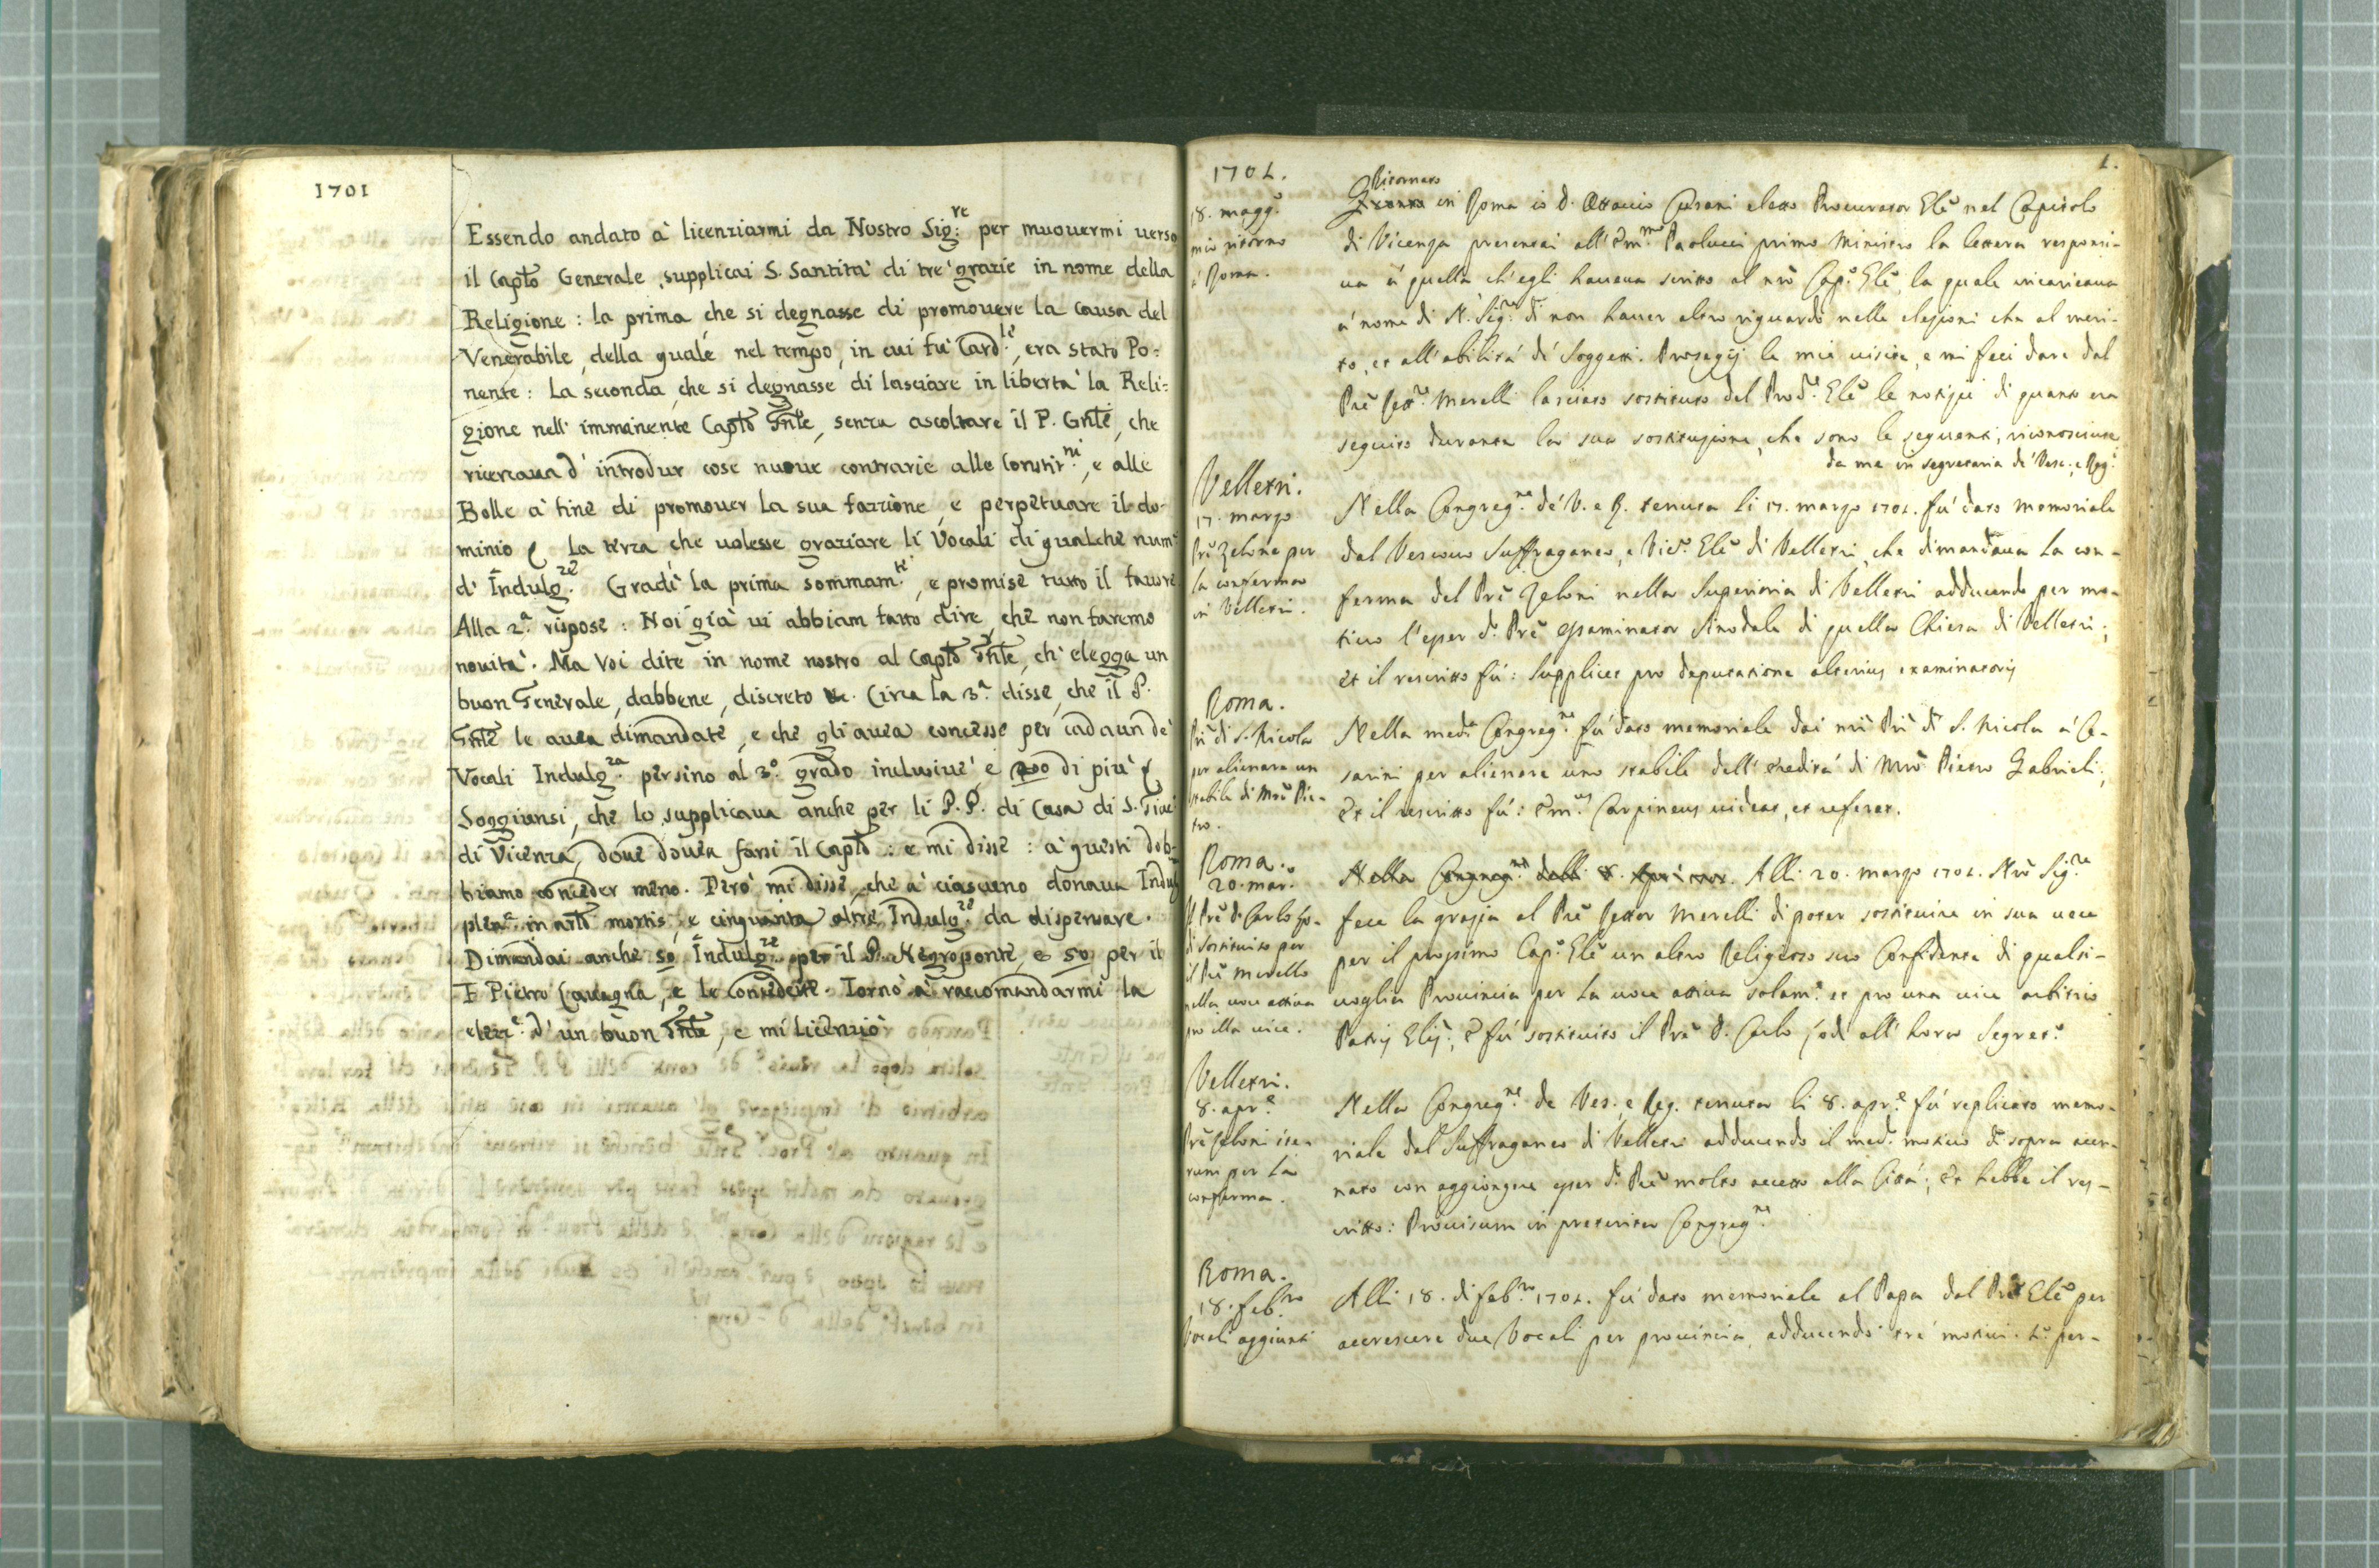 1701
Essendo andato à licenziarmi da Nostro Sig:re per muouermi uerso
il Capto Generale, supplicai S. Santità di tre grazie in nome della
Religione: la prima, che si degnasse di promouere la causa del
Venerabile, della quale nel tempo, in cui fù Card.le, era stato Po:
nente: La seconda, che si degnasse di lasciare in libertà la Reli:
gione nell' imminente Capto Gnle, senza ascoltare il P. Gnle, che
ricercaua d' introdur cose nuoue contrarie alle Constit.ni, e alle
Bolle à fine di promouer la sua fazzione, e perpetuare il do-
minio La terza che uolesse graziare li Vocali di qualche num:
d' Indulg.ze Gradì la prima sommam.te, e promise tutto il fauore
Alla 2.a rispose: Noi già ui abbiam fatto dire, che non faremo
nouità. Ma Voi dite in nome nostro al Capto Gnle, ch' elegga un
buon Generale, dabbene, discreto &c. Circa la 3.a disse, che il P.
Gnle le auea dimandate, e che gli auea concesse per cadaun de
Vocali Indulg.za persino al 3.o grado inclusiue, e 200 di più
Soggiunsi, che lo supplicaua anche per li P.P. di Casa di S.
di Vicenza, doue douea farsi il Capto: e mi disse: à questi dob-
biamo conceder meno. Però mi disse, che à ciascuno donaua Indulg
plen.a in arto mortis, e cinquanta altre Indulg.ze da dispensare.
Dimandai anche 50 Indulg.ze per il P. Negroponte, e 50 per il
F Pietro Cauagna, e le concedette. Tornò à raccomandarmi la
elezz.e d' un buon Gnle, e mi licenziò
1702.
1.
18. magg.o
mio ritorno
à Roma.
Ritornato
in Roma io D. Ottauio Cusani eletto Procurator Gle nel Capitolo
di Vicenza presentai all' Em.mo Paolucci primo Ministro la lettera responsi-
ua à quella ch' egli haueua scritto al nro Cap.o Gle, la quale incaricaua
a' nome di N. Sig.re di non hauer altro riguardo nelle elezioni che al meri-
to, et all' abilità de' Soggetti. Proseguij le mie uisite, e mi feci dare dal
Pre Merelli lasciato sostituto del Pro.re Gle le notizie di quanto era
seguito durante la sua sostituzione, che sono le seguenti, riconosciute
da me in segretaria de' Vesc. e Reg.
Velletri.
17. marzo
Pre Zeloni per
la conferma
in Velletri.
Nella Congreg.ne de' V. e R. tenuta li 17. marzo 1702. fù dato memoriale
dal Vescouo Suffraganeo, e Vic.o Gle di Velletri, che dimandaua la con-
ferma del Pre Zeloni nella Superioria di Velletri adducendo per mo-
tiuo l'esser d.o Pre essaminator Sinodale di quella Chiesa di Velletri;
et il rescritto fù: Supplices pro deputatione alterius examinatoris
Roma.
Pri di S. Nicola
per alienare un
stabile di Mro Pie-
tro.
Nella med.a Congreg.ne fù dato memoriale dai nri Pri di S. Nicola à Ce-
sarini per alienare uno stabile dell' heredità di Mro Pietro Gabrieli;
Et il rescritto fù: Em.us Carpineus uideat, et referat.
Roma.
20. mar.o
Il Pre D. Carlo
di sostituito per
il Pre Merello
nella uoce attiua
pro illa uice.
Nella Congreg.ne delli 8. Alli 20. marzo 1702. Nro Sig.re
fece la grazia al Pre Merelli di poter sostituire in sua uece
per il prossimo Cap.o Gle un altro Religioso suo Confidente di qualsi-
uoglia Prouincia per la uoce attiua solam.e et pro una uice arbitrio
Patris Glis; E fù sostituito il Pre D. Carlo all' hora Segret.o
Velletri.
8. apr.e
Pre Zeloni ite-
rum per la
conferma.
Nella Congreg.ne de Ves. e Reg. tenuta li 8. apr.e fù replicato memo-
riale dal Suffraganeo di Velletri adducendo il med.o motiuo di sopra accen-
nato con aggiongere esser d.o Pre molto accetto alla Città; Et hebbe il res-
critto: Prouisum in preterita Congreg.ne
Roma.
18. feb.ro
Vocali aggiunti
Alli 18. di feb.ro 1702. fù dato memoriale al Papa dal Pre Gle per
accrescere due Vocali per prouincia, adducendo trè motiui. 1.o per-